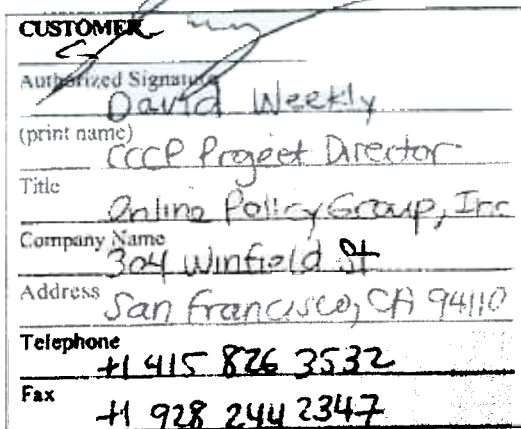 CUSTOMER
Authorized Signature
David Weekly
(print name)
CCCP Project Director
Title
Online Policy Group, Inc
Company Name
304 Winfield St
Address
San Francisco, CA 94110
Telephone
+1 415 826 3532
Fax
+1 928 244 2347